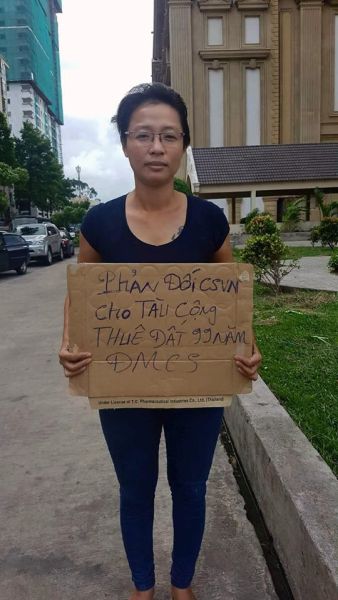 PHẢN ĐỐI CSVN
CHO TÀU CỘNG
THUÊ ĐẤT 99 NĂM
ĐMCS
Under License of T.C. Pharmaceutical Industries Co., Ltd. (Thailand)